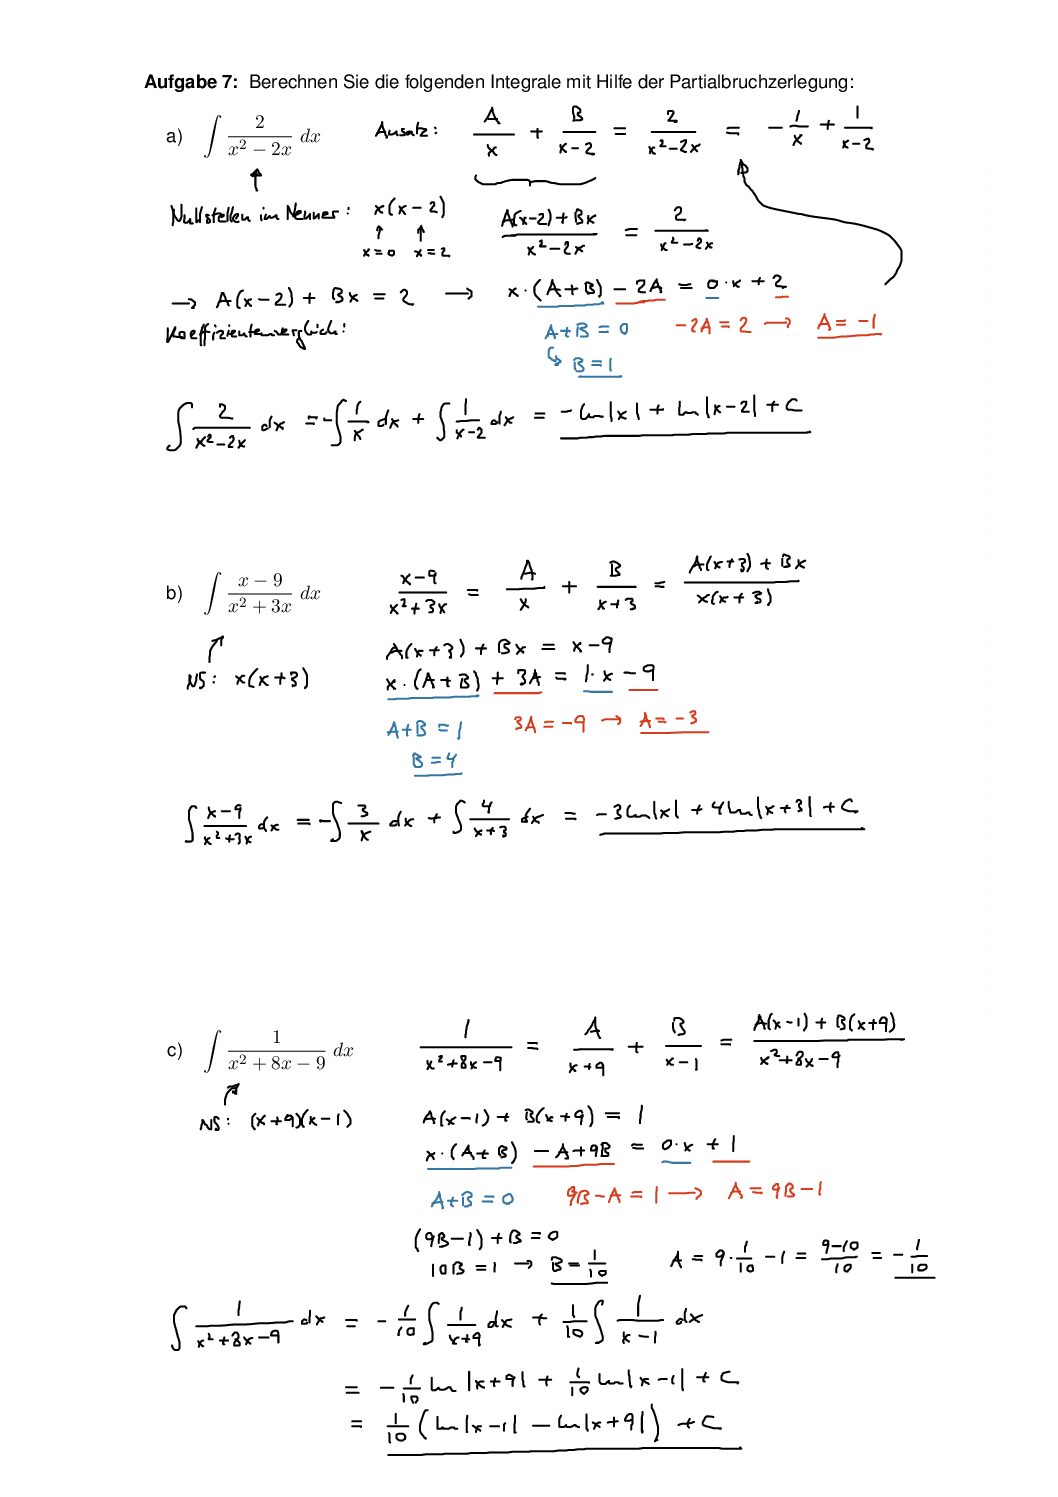 Aufgabe 7: Berechnen Sie die folgenden Integrale mit Hilfe der Partialbruchzerlegung:
a) ∫ 2/(x² − 2x) dx   Ansatz: A/x + B/(x−2) = 2/(x²−2x) = −1/x + 1/(x−2)
Nullstellen im Nenner: x(x−2)   (A(x−2)+Bx)/(x²−2x) = 2/(x²−2x)
x=0 x=2
→ A(x−2) + Bx = 2 → x·(A+B) − 2A = 0·x + 2
Koeffizientenvergleich: A+B = 0   −2A = 2 → A = −1
↳ B = 1
∫ 2/(x²−2x) dx = −∫ 1/x dx + ∫ 1/(x−2) dx = −ln|x| + ln|x−2| + C
b) ∫ (x − 9)/(x² + 3x) dx   (x−9)/(x²+3x) = A/x + B/(x+3) = (A(x+3) + Bx)/(x(x+3))
A(x+3) + Bx = x−9
NS: x(x+3)   x·(A+B) + 3A = 1·x − 9
A+B = 1   3A = −9 → A = −3
B = 4
∫ (x−9)/(x²+3x) dx = −∫ 3/x dx + ∫ 4/(x+3) dx = −3ln|x| + 4ln|x+3| + C
c) ∫ 1/(x² + 8x − 9) dx   1/(x²+8x−9) = A/(x+9) + B/(x−1) = (A(x−1) + B(x+9))/(x²+8x−9)
NS: (x+9)(x−1)   A(x−1) + B(x+9) = 1
x·(A+B) − A+9B = 0·x + 1
A+B = 0   9B−A = 1 → A = 9B−1
(9B−1)+B = 0
10B = 1 → B = 1/10   A = 9·1/10 − 1 = (9−10)/10 = −1/10
∫ 1/(x²+8x−9) dx = −1/10 ∫ 1/(x+9) dx + 1/10 ∫ 1/(x−1) dx
= −1/10 ln|x+9| + 1/10 ln|x−1| + C
= 1/10 (ln|x−1| − ln|x+9|) + C